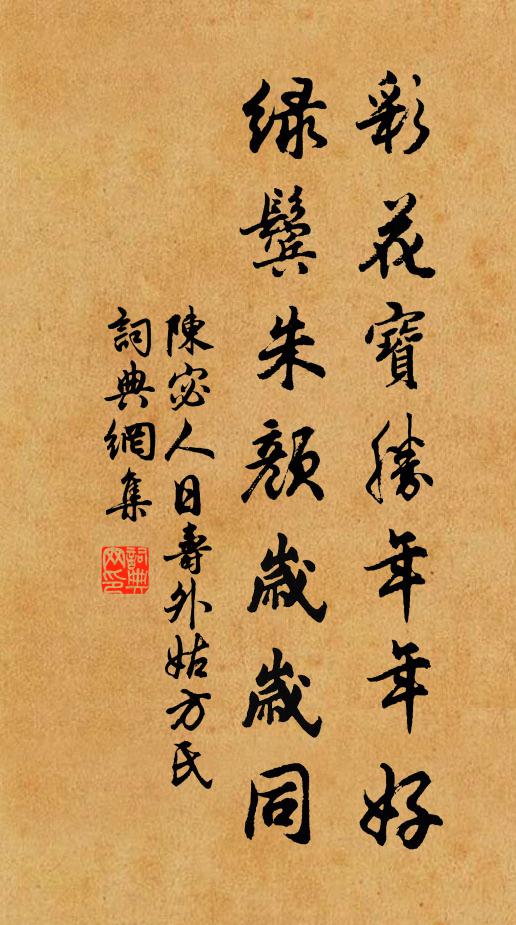 彩花寶勝年年好
綠鬢朱顏歲歲同
陳宓人日壽外姑方氏
詞典網集
詞典网印